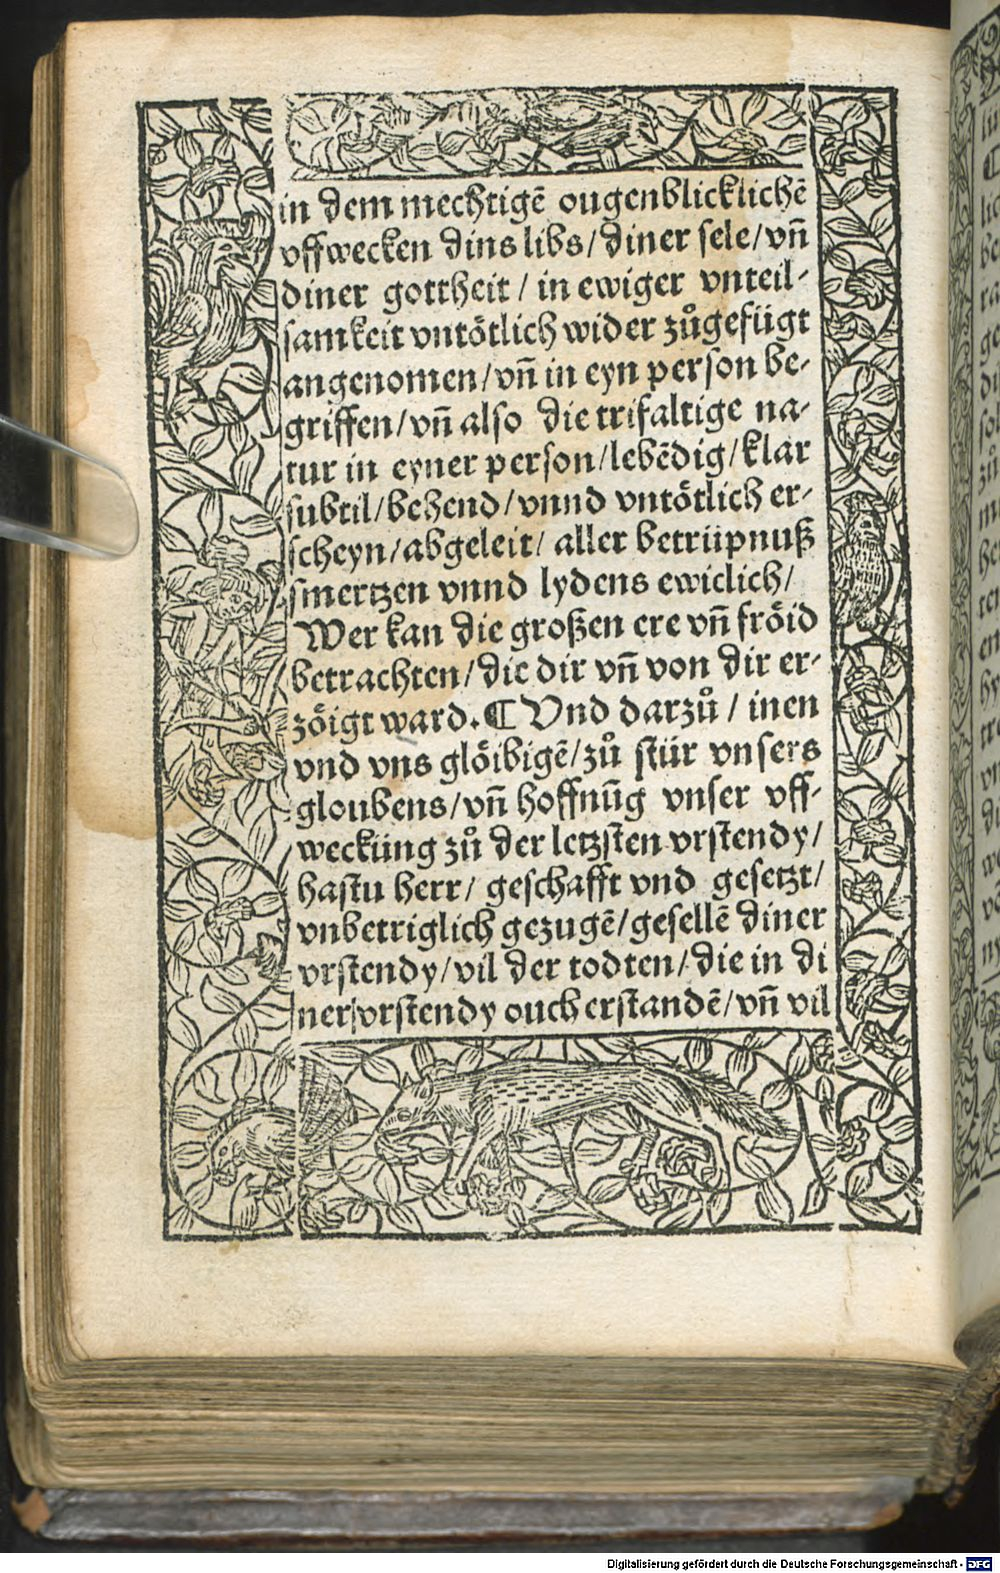 in dem mechtigē ougenblicklichē
vffwecken dins libs/diner sele/vn̄
diner gottheit / in ewiger vnteil-
samkeit vntötlich wider zůgefügt
angenomen/vn̄ in eyn person be-
griffen/vn̄ also die trifaltige na-
tur in eyner person/lebēdig/klar
subtil/behend/vnnd vntötlich er-
scheyn/abgeleit/ aller betrüpnuß
smertzen vnnd lydens ewiclich/
Wer kan die großen ere vn̄ fröid
betrachten/die dir vn̄ von dir er-
zöigt ward.¶ Vnd darzů / inen
vnd vns glöibigē/zů stür vnsers
gloubens/vn̄ hoffnūg vnser vff-
weckūng zů der letzsten vrstendy/
hastu herr/ geschafft vnd gesetzt/
vnbetriglich gezugē/gesellē diner
vrstendy/vil der todten/die in di
ner vrstendy ouch erstandē/vn̄ vil
Digitalisierung gefördert durch die Deutsche Forschungsgemeinschaft - DFG